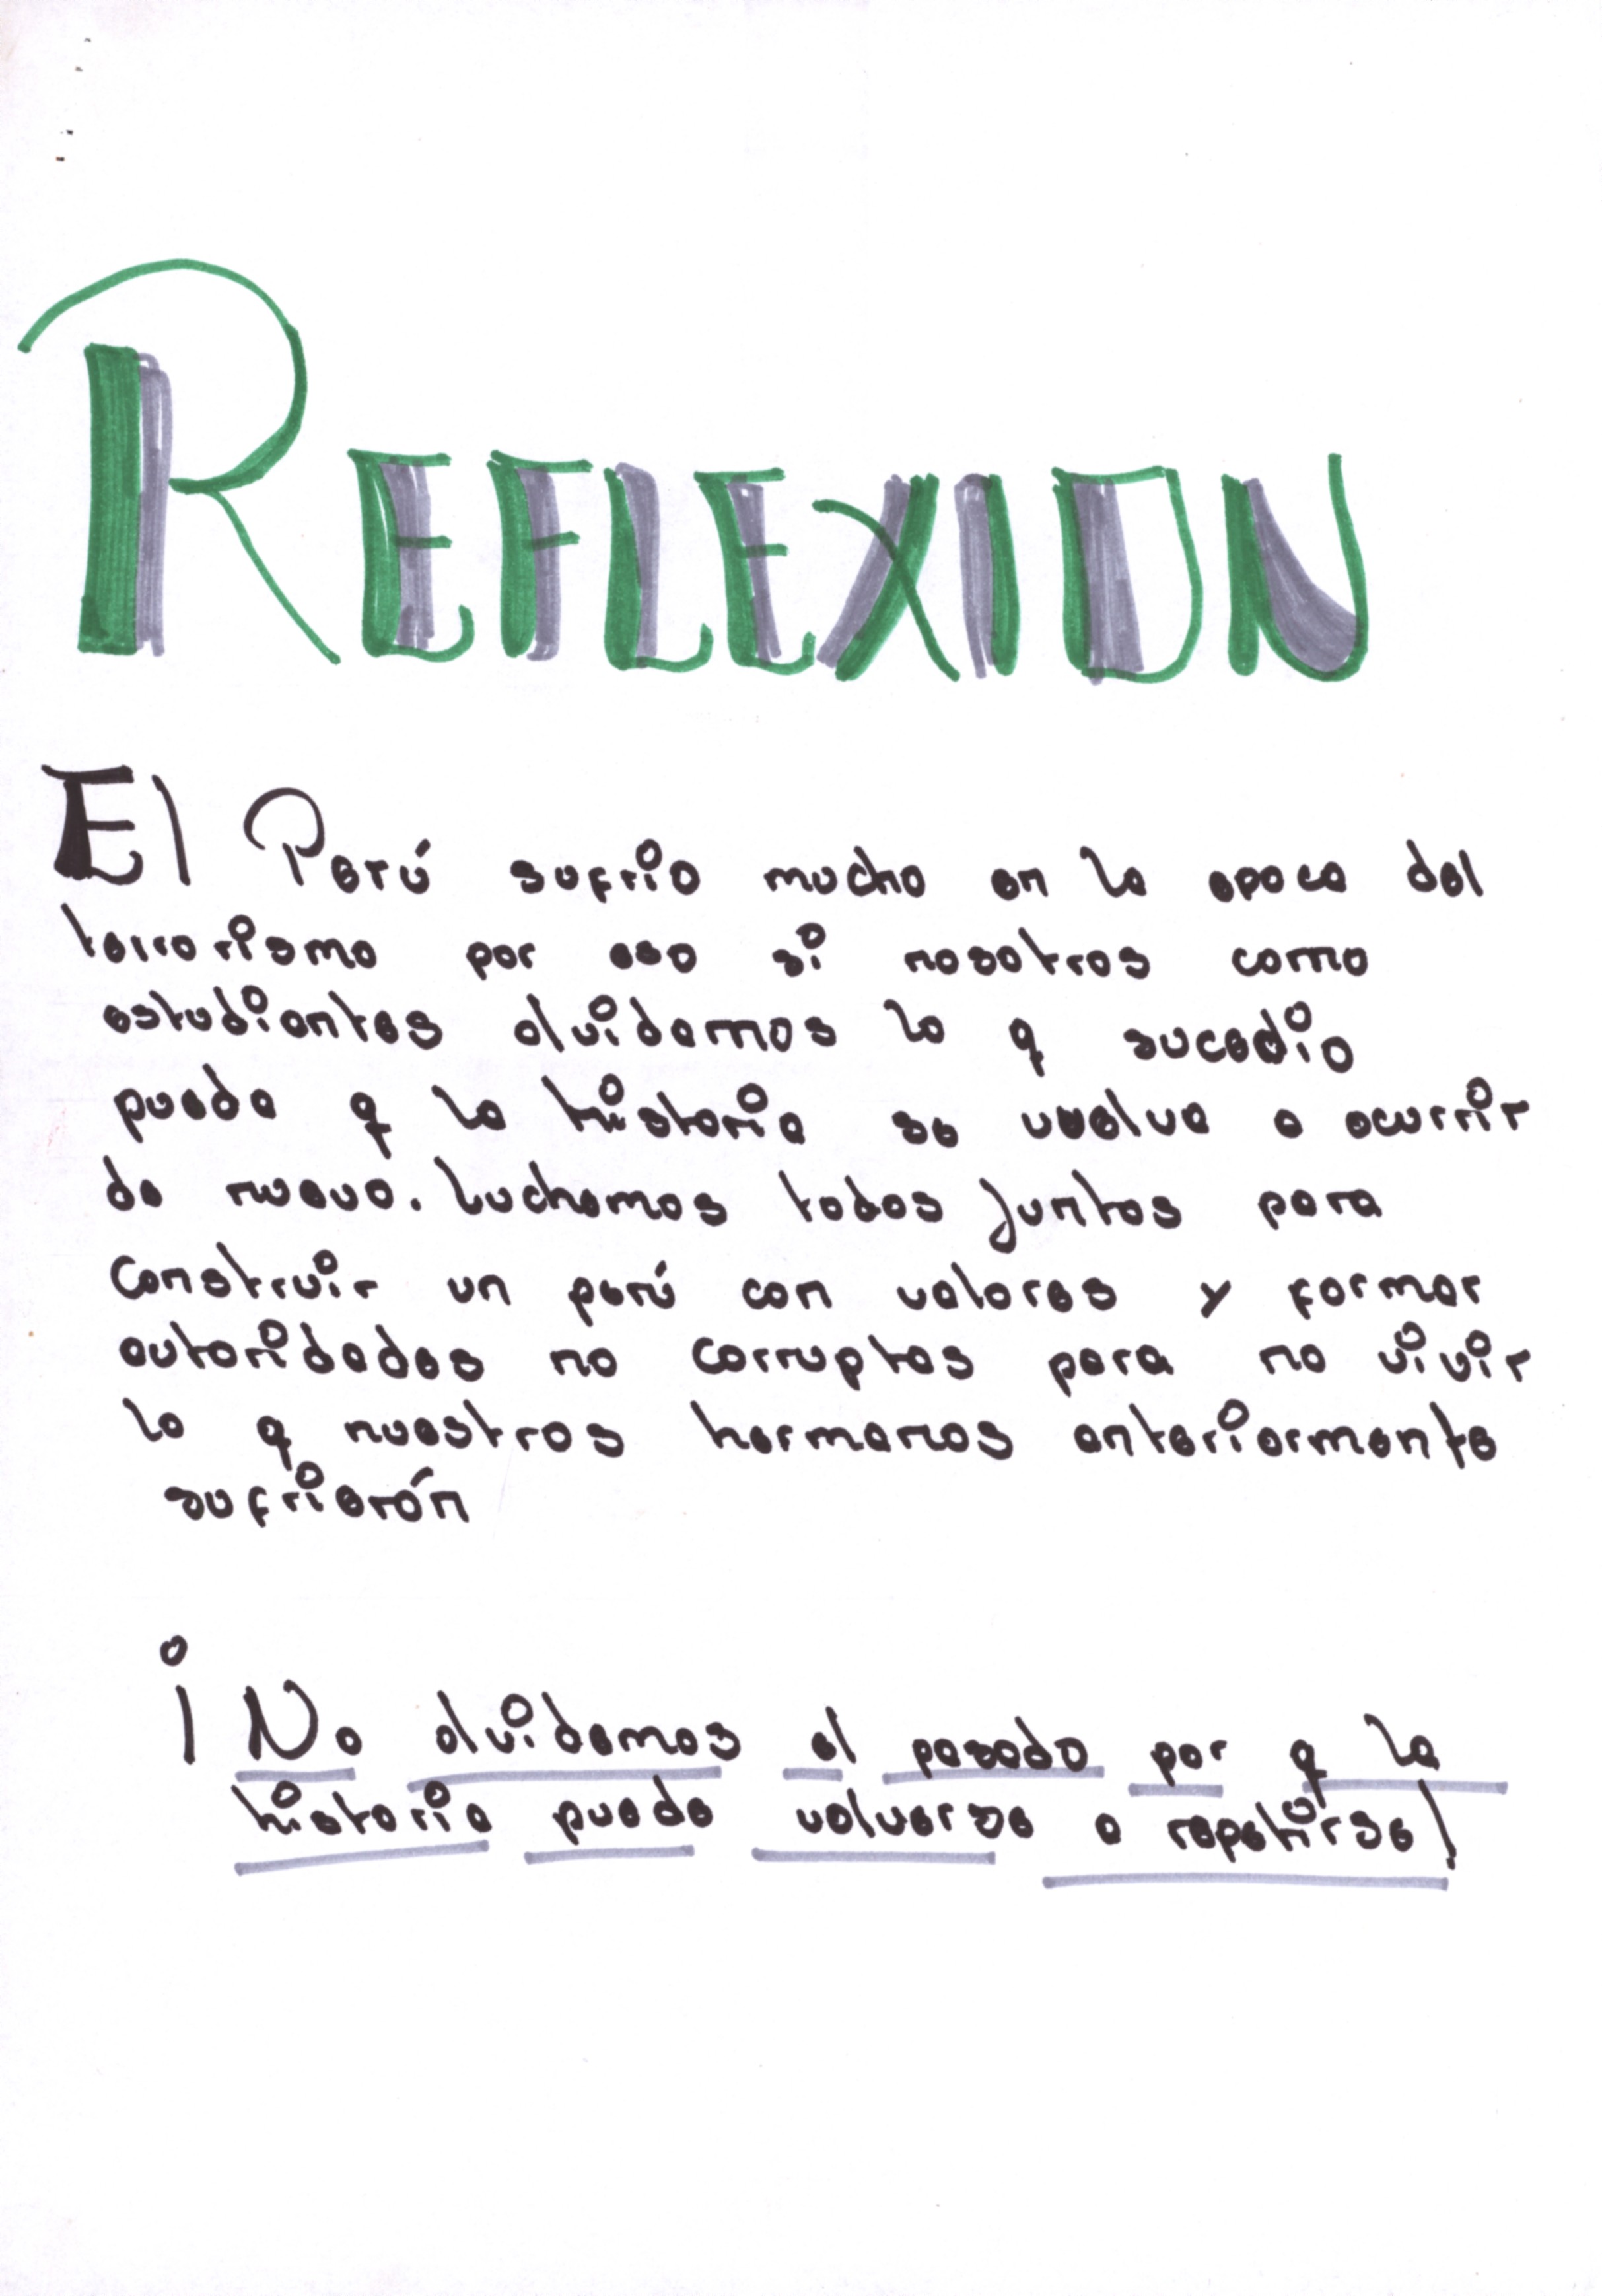 REFLEXION
El Perú sufrio mucho en la epoca del
terrorismo por eso si nosotros como
estudiantes olvidamos lo q sucedio
puede q la historia se vuelva a ocurrir
de nuevo. Luchemos todos juntos para
Construir un perú con valores y formar
autoridades no corruptas para no vivir
lo q nuestros hermanos anteriormente
sufrierón
¡No olvidemos el pasado por q la
historia puede volverse a repetirse!